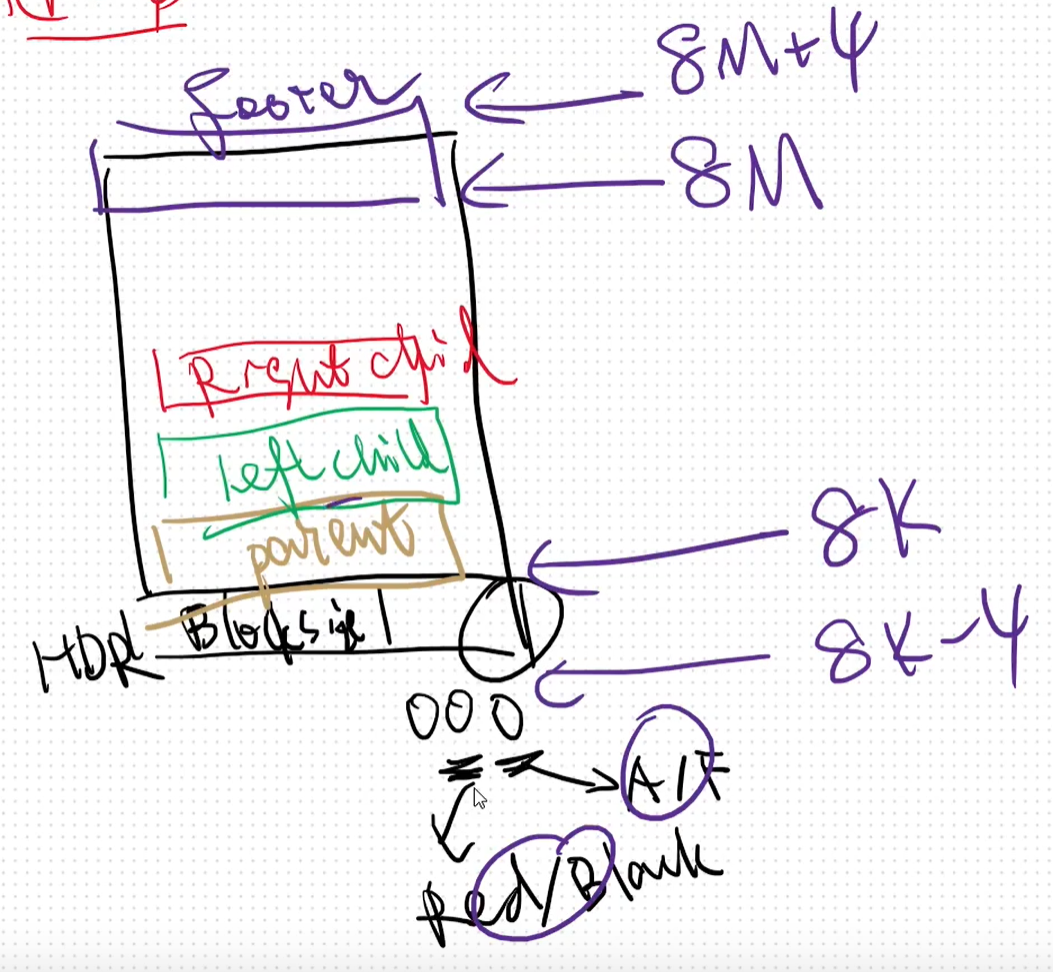 8M+4
footer
8M
Right child
left child
parent
8K
HDR Blocksize
8K-4
000
A/F
Red/Black